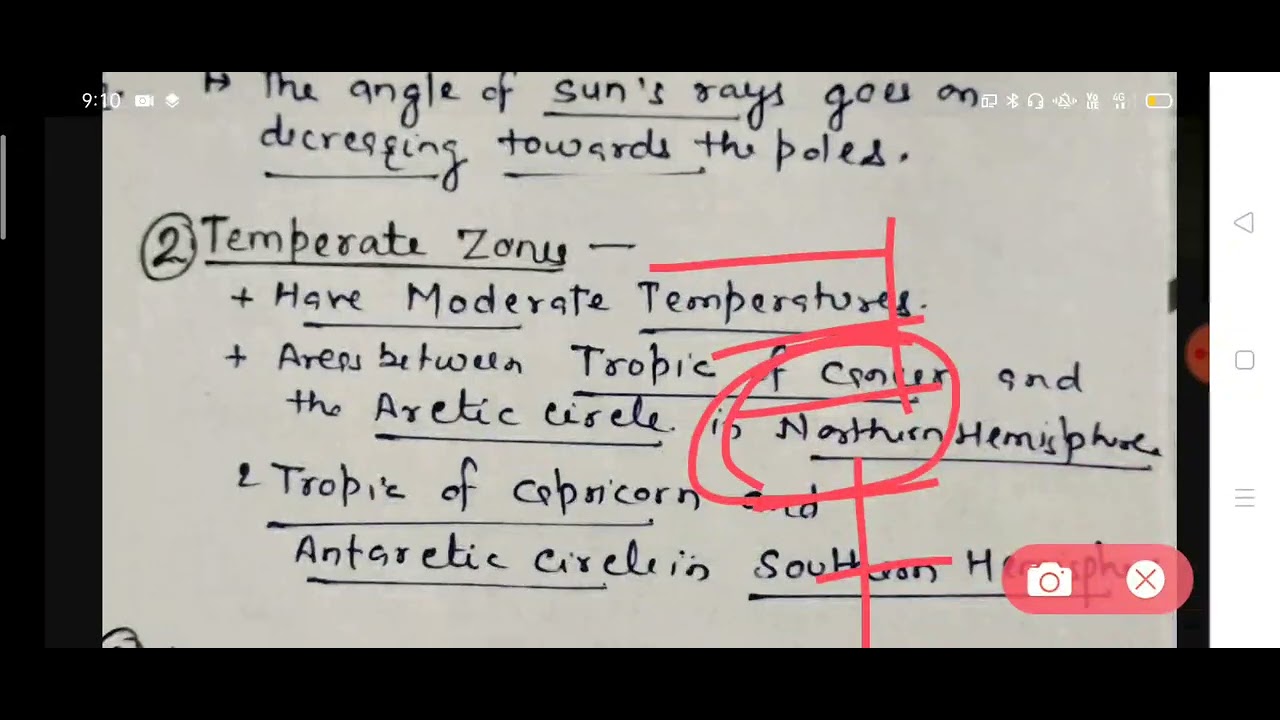 → The angle of sun's rays goes on
9:10
decreasing towards the poles.
② Temperate Zones —
+ Have Moderate Temperatures.
+ Areas between Tropic of Cancer and
the Arctic circle in Northern Hemisphere
& Tropic of Capricorn and
Antarctic circle in Southern Hemisphere